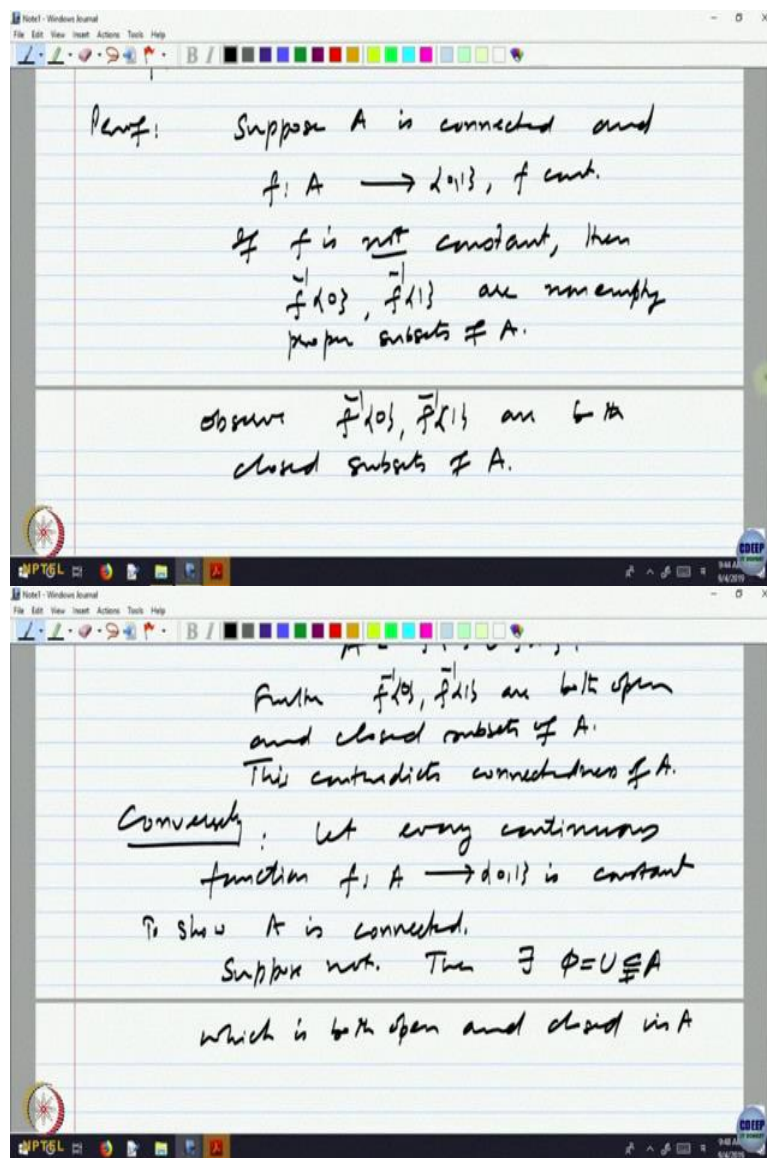 Note1 - Windows Journal
File Edit View Insert Actions Tools Help
Proof: Suppose A is connected and
f: A → {0,1}, f cont.
If f is not constant, then
f⁻¹{0}, f⁻¹{1} are nonempty
proper subsets of A.
observe f⁻¹{0}, f⁻¹{1} are both
closed subsets of A.
NPTEL
CDEEP
9:44 AM
9/4/2019
Note1 - Windows Journal
File Edit View Insert Actions Tools Help
Further f⁻¹{0}, f⁻¹{1} are both open
and closed subsets of A.
This contradicts connectedness of A.
Conversely: Let every continuous
function f: A → {0,1} is constant
To show A is connected.
Suppose not. Then ∃ φ=U⊊A
which is both open and closed in A
NPTEL
CDEEP
9:48 AM
9/4/2019